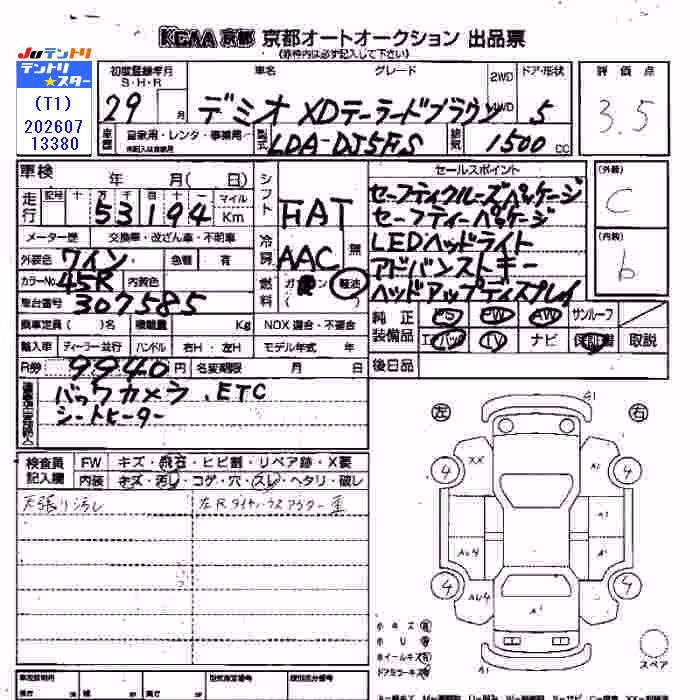 KCAA 京都 京都オートオークション 出品票
(赤枠内は必ず記入して下さい)
JUテントリ
テントリ★スター
(T1)
202607
13380
初度登録年月 車名 グレード 2WD ドア・形状 評価点
S・H・R
29 月 デミオ XDテーラードブラウン 4WD 5 3.5
車歴 自家用・レンタ・事業用 型式 LDA-DJ5FS 排気 1500 cc
車検 年 月(日) シフト FAT セールスポイント (外装)
走行 記号 十 万 千 百 十 一 マイル セーフティクルーズパッケージ C
53194 Km セーフティーパッケージ
メーター歴 交換車・改ざん車・不明車 冷房 AAC 無 LEDヘッドライト (内装)
外装色 ワイン 色替 有 アドバンストキー b
カラーNo. 45R 内装色 燃料 ガソリン 軽油 ヘッドアップディスプレイ
車台番号 307585 ( )
乗車定員 ( )名 積載量 Kg NOX適合・不適合 純正装備品 PS PW AW サンルーフ
輸入車 ディーラー 並行 ハンドル 右H・左H モデル年式 年 エアバッグ TV ナビ 保証書 取説
R券 9940 円 名変期限 月 日 後日品
バックカメラ.ETC
シートヒーター
左 右
A1
検査員記入欄 FW キズ・飛石・ヒビ割・リペア跡・X要
内装 キズ・汚レ・コゲ・穴・スレ・ヘタリ・破レ
天張り汚レ
4 XX A1 4
AU4 A1
4 AU4 A1 4
小キズ 有
ホイールキズ 有
ドアミラーキズ 有
スペア